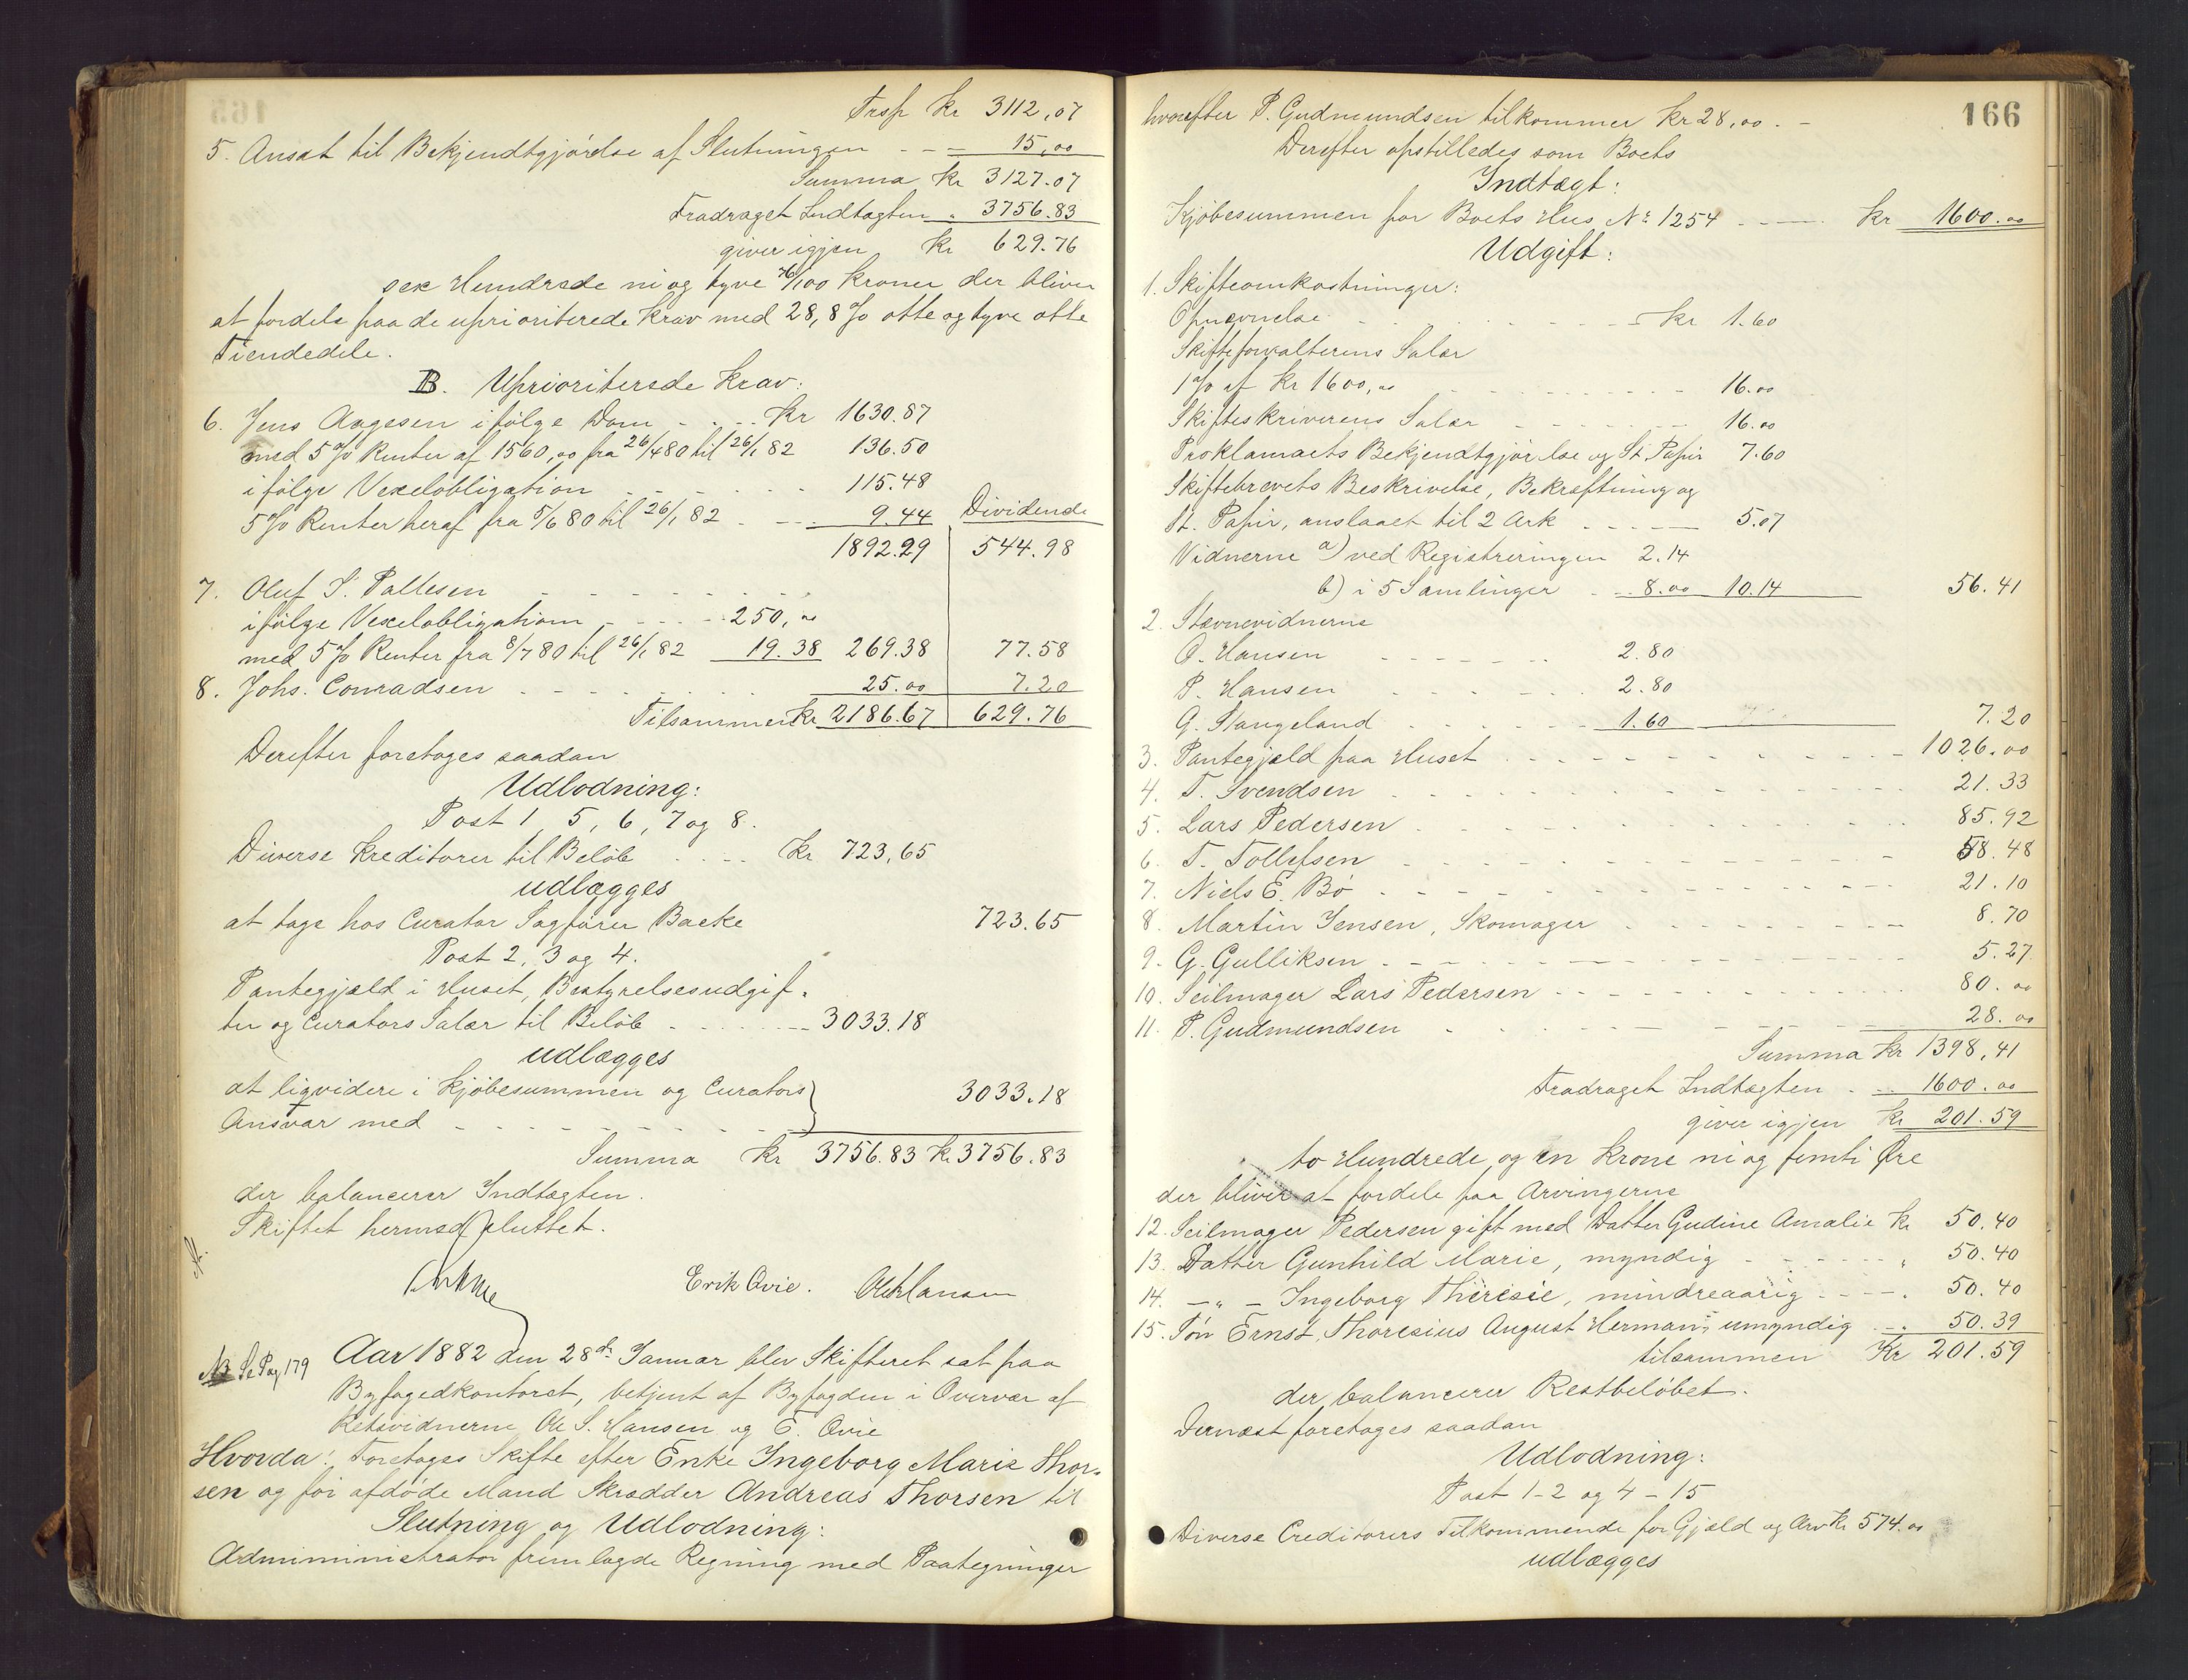 Trsp Kr 3112,07
5. Ansat til Bekjendtgjørelse af Slutningen - - - 15,00
Summa Kr 3127.07
Fradraget Indtægten " 3756.83
giver igjen Kr 629.76
sex Hundrede ni og tyve 76/100 Kroner der bliver
at fordele paa de uprioriterede Krav med 28,8 % otte og tyve otte
Tiendedele.
B. Uprioriterede Krav:
6. Jens Aagesen ifølge Dom - - - Kr 1630.87
med 5 % Renter af 1560,00 fra 26/4 80 til 26/1 82 136.50
ifølge Vexelobligation - - - - - 115.48
5 % Renter heraf fra 5/6 80 til 26/1 82 - - - 9.44 Dividende
1892.29 544.98
7. Oluf S. Pallesen - - - - - -
ifølge Vexelobligation - - - - 250,00
med 5 % Renter fra 8/7 80 til 26/1 82 19.38 269.38 77.58
8. Johs. Conradsen - - - - - - 25.00 7.20
Tilsammen Kr 2186.67 629.76
Derefter foretoges saadan
Udlodning:
Post 1 5, 6, 7 og 8.
Diverse Kreditorer til Beløb - - - Kr 723,65
udlægges
at tage hos Curator Sagfører Backe 723.65
Post 2, 3 og 4.
Pantegjæld i Huset, Bestyrelsesudgif-
ter og Curators Salær til Beløb - - - - 3033.18
udlægges
at liqvidere i Kjøbesummen og Curators } 3033.18
Ansvar med - - - - - - - -
Summa Kr 3756.83 Kr 3756.83
der balancerer Indtægten.
Skiftet hermed sluttet.
Erik Qvie. Ole Hansen
NB Se Pag 179 Aar 1882 den 28de Januar blev Skifteret sat paa
Byfogedkontoret, betjent af Byfogden i Overvær af
Retsvidnerne Ole S. Hansen og E. Qvie
Hvorda: Foretoges Skifte efter Enke Ingeborg Marie Thor-
sen og før afdøde Mand Skrædder Andreas Thorsen til
Slutning og Udlodning:
Admiministrator fremlagde Regning med Paategninger
166
hvorefter P. Gudmundsen tilkommer Kr 28,00. -
Derefter opstilledes som Boets
Indtægt:
Kjøbesummen for Boets Hus No 1254 - - - Kr 1600.00
Udgift:
1. Skifteomkostninger:
Opnævnelse - - - - - - Kr 1.60
Skifteforvalterens Salær
1 % af Kr 1600,00 - - - - - - 16.00
Skifteskriverens Salær - - - - - 16.00
Proklamaets Bekjendtgjørelse og St. Papir 7.60
Skiftebrevets Beskrivelse, Bekræftning og
St. Papir, anslaaet til 2 Ark - - - - 5.07
Vidnerne a) ved Registreringen 2.14
b) i 5 Samlinger - - 8.00 10.14 56.41
2. Stævnevidnerne
O. Hansen - - - - - 2.80
P. Hansen - - - - - 2.80
G. Stangeland - - - - - 1.60 7.20
3. Pantegjæld paa Huset - - - - - - - 1026.00
4. T. Svendsen - - - - - - - 21.33
5. Lars Pedersen - - - - - - - 85.92
6. T. Tollefsen - - - - - - - 58.48
7. Niels E. Bø - - - - - - - 21.10
8. Martin Jensen, Skomager - - - - - 8.70
9. G. Gulliksen - - - - - - - 5.27
10. Seilmager Lars Pedersen - - - - - - 80.00
11. P. Gudmundsen - - - - - - - 28.00
Summa Kr 1398,41
Fradraget Indtægten - - 1600.00
giver igjen Kr 201.59
to Hundrede og en Krone ni og femti Øre
der bliver at fordele paa Arvingerne
12. Seilmager Pedersen gift med Datter Gudine Amalie Kr 50.40
13. Datter Gunhild Marie, myndig - - - - - " 50.40
14. - " - Ingeborg Theresie, mindreaarig - - - - 50.40
15. Søn Ernst Thoresius August Herman, umyndig - - 50.39
tilsammen Kr 201.59
der balancerer Restbeløbet.
Dernæst foretoges saadan
Udlodning:
Post 1-2 og 4 - 15
Diverse Creditorers Tilkommende for Gjæld og Arv Kr 574.00
udlægges